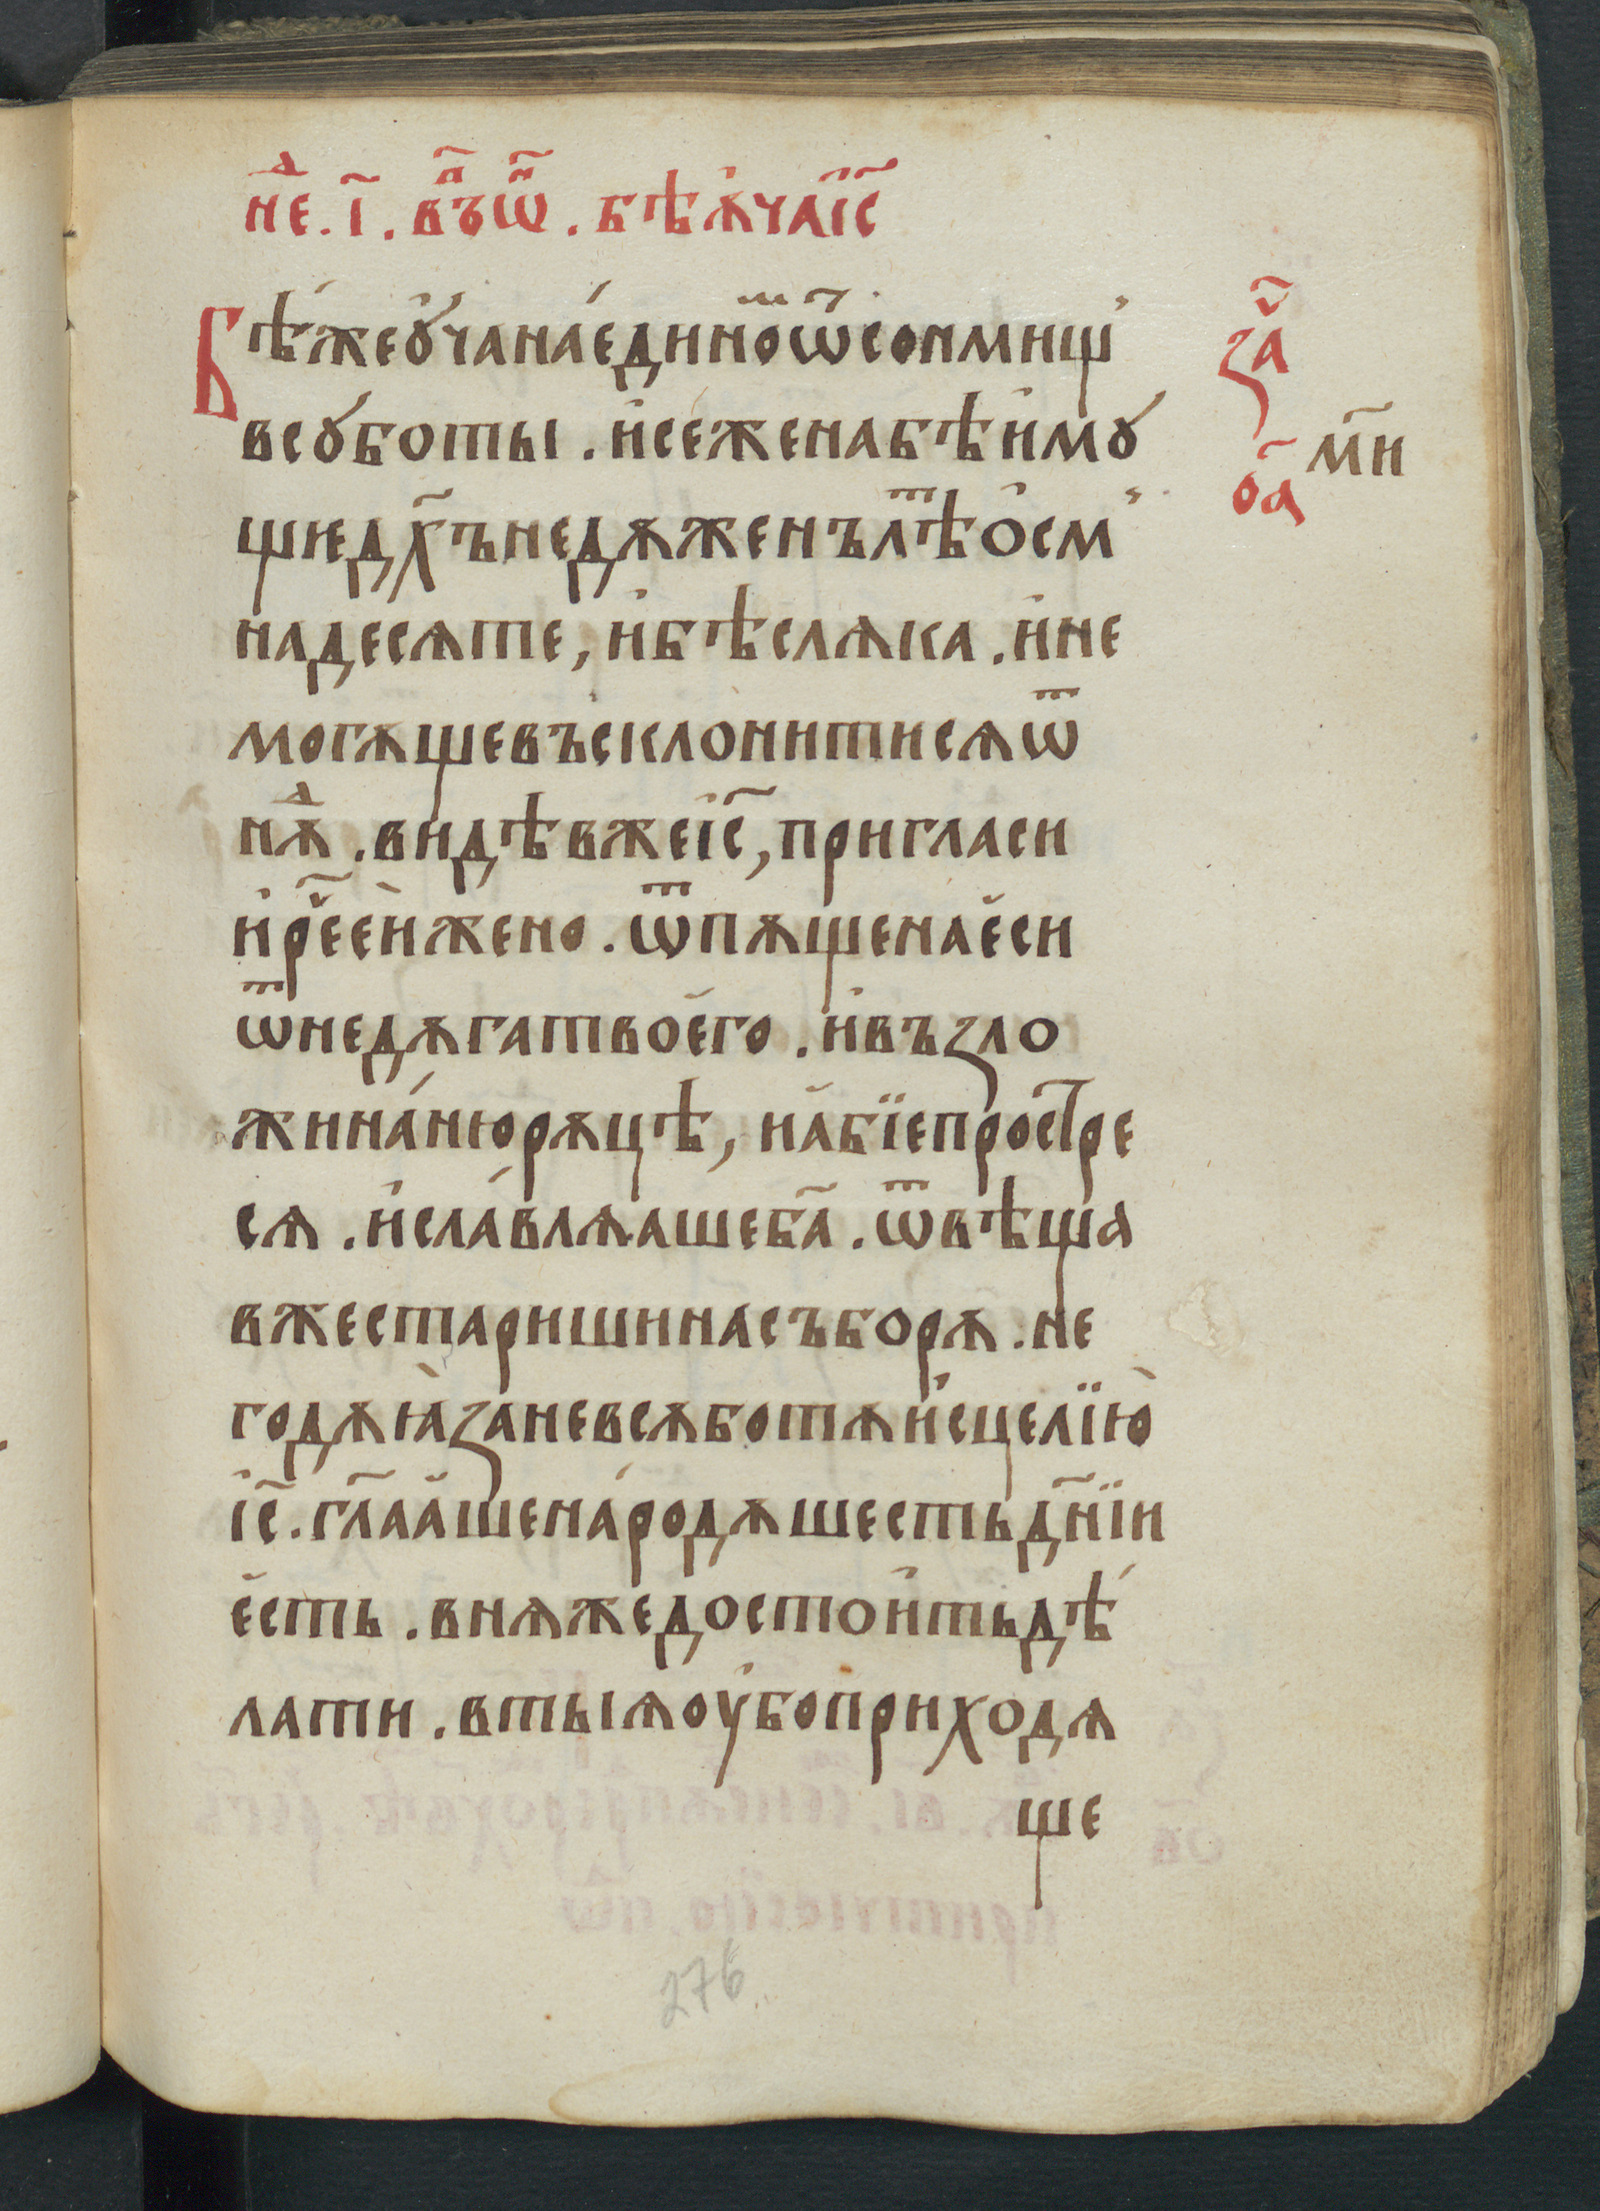 нⷣе҃. і҃. въⷫ҇ѿⷩ҇. бѣ ѫча і҃с
Бѣ́ же ꙋ҆ча на́ єдиноⷨ ѿ сонмищ҆
в сꙋботы. и҆ се жена бѣ и҆мꙋ
щи д҃хъ недѫженъ лѣⷮ о҆см҆
надесѧте, и҆ бѣ слѫка. и҆ не
могѫщѐ въсклонитисѧ ѿ
нѫⷣ. видѣв же і҃с, пригласи
и҆ рⷱ҇е є҆и̇̀ жено. ѿпѫщена є҆си
ѿ недѫга твоего. и҆ възло
жи на́ ню рѫцѣ, и а҆бїе простре
сѧ. и҆ сла́влѧаше б҃а. ѿвѣща
в же старишина съборѫ. не
годѫꙗ̀ зане в сѫботѫ и҆сцели ю҆̀
і҃с. гл҃аа҆ше на́родѫ шесть дн҃їи
є҆сть. в нѧже достоитъ дѣ́
лати. в тыѧ оу҆бо приходѧ
ще
заⷱ҇
ѻ҃а
м҃и
276